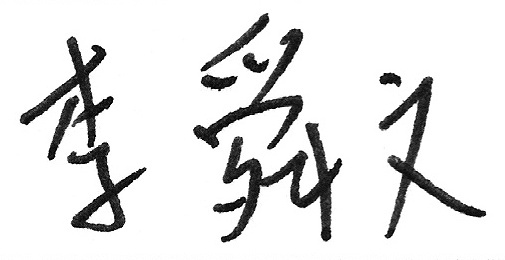 李舜文